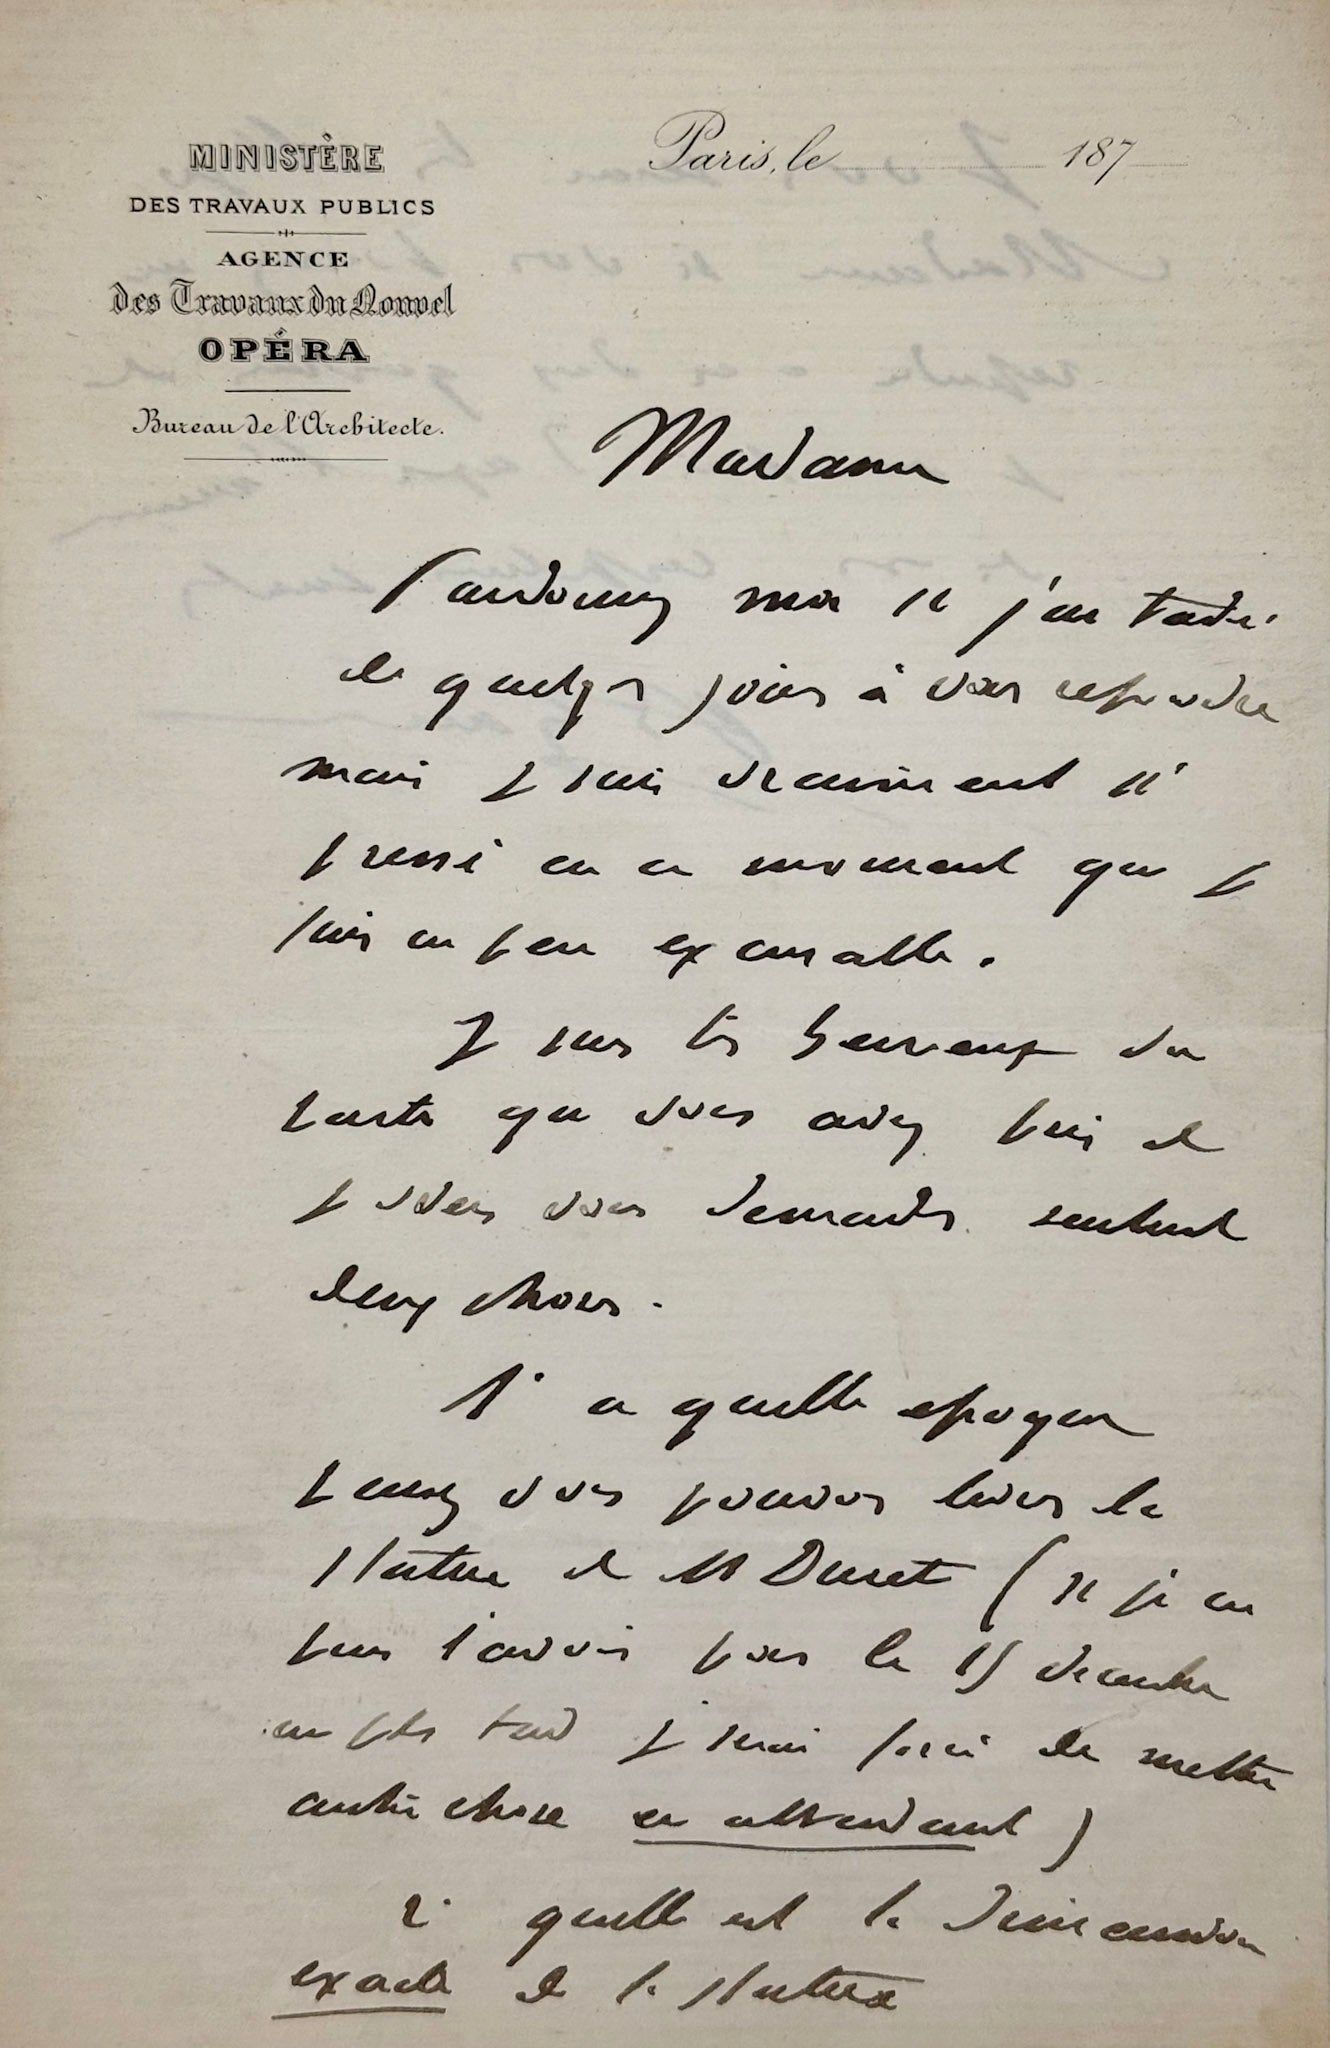 MINISTÈRE
DES TRAVAUX PUBLICS
AGENCE
des Travaux du Nouvel
OPÉRA
Bureau de l'Architecte.
Paris, le 187
Madame
Pardonnez moi si j'ai tardé
de quelques jours à vous repondre
mais je suis vraiment si
pressé en ce moment que je
suis un peu excusable.
Je suis très heureux du
que vous avez pris et
je viens vous demander seulement
deux choses.
1° a quelle epoque
pensez vous pouvoir livrer la
statue de Mr Duret (si je ne
puis l'avoir pour le 15 decembre
au plus tard je serai forcé de mettre
autre chose en attendant)
2° quelle est la dimension
exacte de la statue